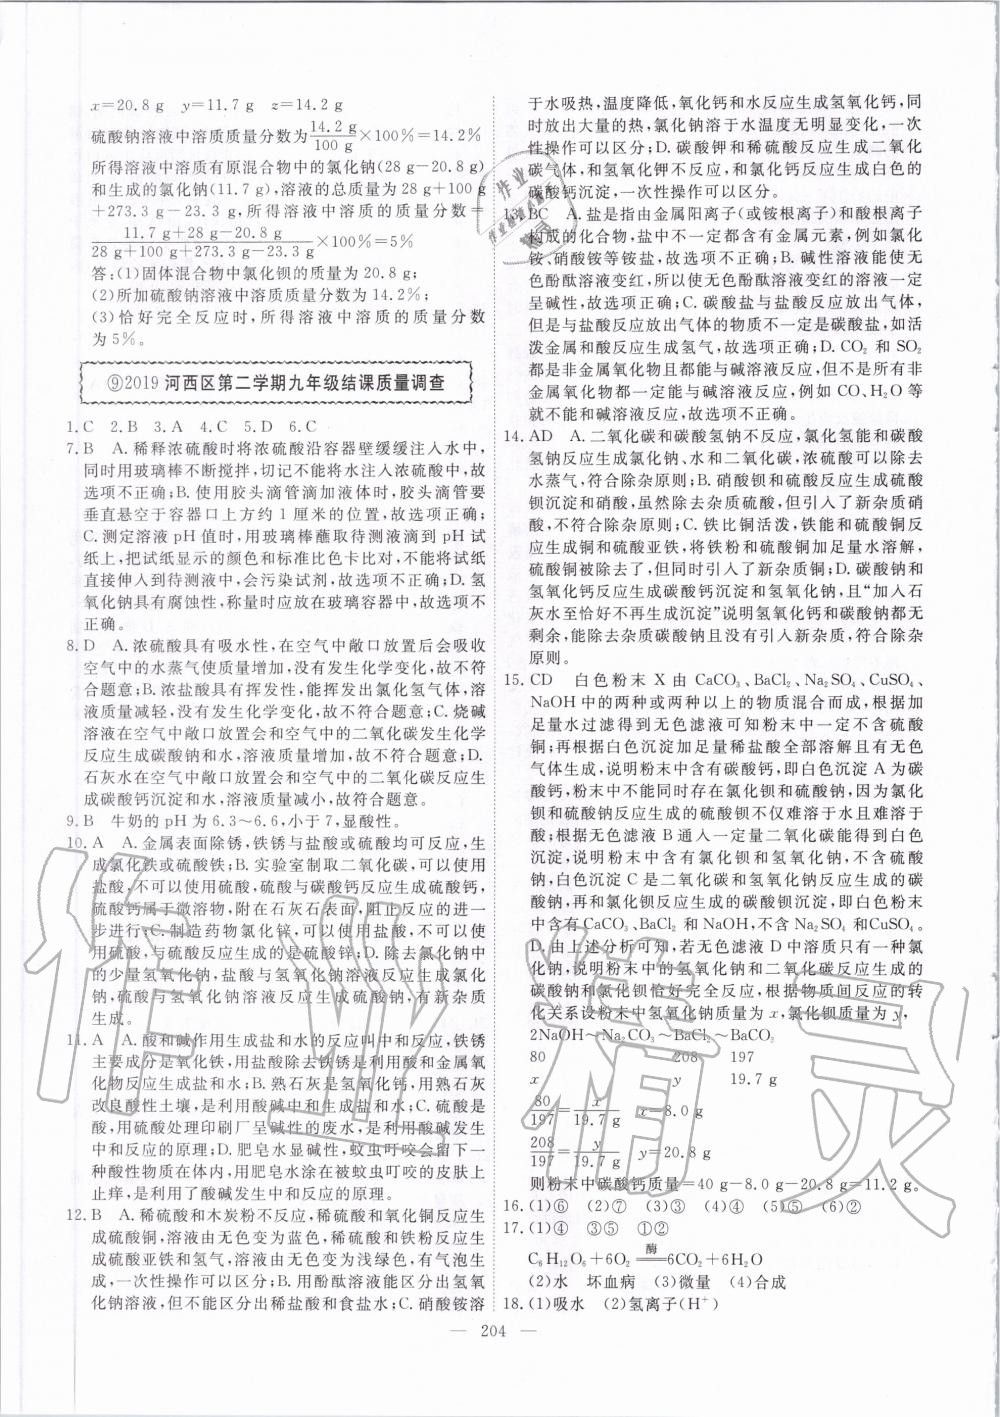 x=20.8 g　y=11.7 g　z=14.2 g
硫酸钠溶液中溶质质量分数为14.2 g/100 g×100%=14.2%
所得溶液中溶质有原混合物中的氯化钠(28 g-20.8 g)
和生成的氯化钠(11.7 g),溶液的总质量为 28 g+100 g
+273.3 g-23.3 g,所得溶液中溶质的质量分数=
11.7 g+28 g-20.8 g
28 g+100 g+273.3 g-23.3 g×100%=5%
答:(1)固体混合物中氯化钡的质量为 20.8 g;
(2)所加硫酸钠溶液中溶质质量分数为 14.2%;
(3)恰好完全反应时,所得溶液中溶质的质量分数
为 5%。
⑨2019 河西区第二学期九年级结课质量调查
1.C　2.B　3.A　4.C　5.D　6.C
7.B　A.稀释浓硫酸时将浓硫酸沿容器壁缓缓注入水中,
同时用玻璃棒不断搅拌,切记不能将水注入浓硫酸中,故
选项不正确;B.使用胶头滴管滴加液体时,胶头滴管要
垂直悬空于容器口上方约 1 厘米的位置,故选项正确;
C.测定溶液 pH 值时,用玻璃棒蘸取待测液滴到 pH 试
纸上,把试纸显示的颜色和标准比色卡比对,不能将试纸
直接伸入到待测液中,会污染试剂,故选项不正确;D.氢
氧化钠具有腐蚀性,称量时应放在玻璃容器中,故选项不
正确。
8.D　A.浓硫酸具有吸水性,在空气中敞口放置后会吸收
空气中的水蒸气使质量增加,没有发生化学变化,故不符
合题意;B.浓盐酸具有挥发性,能挥发出氯化氢气体,溶
液质量减轻,没有发生化学变化,故不符合题意;C.烧碱
溶液在空气中敞口放置会和空气中的二氧化碳发生化学
反应生成碳酸钠和水,溶液质量增加,故不符合题意;D.
石灰水在空气中敞口放置会和空气中的二氧化碳反应生
成碳酸钙沉淀和水,溶液质量减小,故符合题意。
9.B　牛奶的 pH 为 6.3～6.6,小于 7,显酸性。
10.A　A.金属表面除锈,铁锈与硫酸均可反应,生
成氯化铁或硫酸铁;B.实验室制取二氧化碳,可以使用
盐酸,不可以使用硫酸,硫酸与碳酸钙反应生成硫酸钙,
硫酸钙属于微溶物,附在石灰石表面,阻止反应的进一
步进行;C.制造药物氯化锌,可以使用盐酸,不可以使用
硫酸,与硫酸反应生成的是硫酸锌;D.除去氯化钠中
的少量氢氧化钠,盐酸与氢氧化钠溶液反应生成氯化
钠,硫酸与氢氧化钠溶液反应生成硫酸钠,有新杂质
生成。
11.A　A.酸和碱作用生成盐和水的反应叫中和反应,铁锈
主要成分是氧化铁,用盐酸除去铁锈是利用酸和金属氧
化物反应生成盐和水;B.熟石灰是氢氧化钙,用熟石灰
改良酸性土壤,是利用酸碱中和生成盐和水;C.硫酸是
酸,用硫酸处理印刷厂呈碱性的废水,是利用酸碱发生
中和反应的原理;D.肥皂水显碱性,蚊虫叮咬会留下一
种酸性物质在体内,用肥皂水涂在被蚊虫叮咬的皮肤上
止痒,是利用了酸碱发生中和反应的原理。
12.B　A.稀硫酸和木炭粉不反应,稀硫酸和氧化铜反应生
成硫酸铜,溶液由无色变为蓝色,稀硫酸和铁粉反应生
成硫酸亚铁和氢气,溶液由无色变为浅绿色,有气泡生
成,一次性操作可以区分;B.用酚酞溶液能区分出氢氧
化钠溶液,但不能区分出稀盐酸和食盐水;C.硝酸铵溶
于水吸热,温度降低,氧化钙和水反应生成氢氧化钙,同
时放出大量的热,氯化钠溶于水温度无明显变化,一次
性操作可以区分;D.碳酸钾和稀硫酸反应生成二氧化
碳气体,和氢氧化钾不反应,和氯化钙反应生成白色的
碳酸钙沉淀,一次性操作可以区分。
13.BC　A.盐是指由金属阳离子(或铵根离子)和酸根离子
构成的化合物,盐中不一定含有金属元素,例如氯化
铵、硝酸铵等铵盐,故选项不正确;B.碱性溶液能使无
色酚酞溶液变红,所以使无色酚酞溶液变红的溶液一定
呈碱性,故选项正确;C.碳酸盐与盐酸反应放出气体,
但是与盐酸反应放出气体的物质不一定是碳酸盐,如活
泼金属和酸反应生成氢气,故选项正确;D.CO₂ 和 SO₂
都是非金属氧化物且都能与碱反应,但是不是所有非金
属氧化物都一定能与碱溶液反应,例如 CO、H₂O 等
就不能和碱溶液反应,故选项不正确。
14.AD　A.二氧化碳和碳酸氢钠不反应,氯化氢能和碳酸
氢钠反应生成氯化钠、水和二氧化碳,浓硫酸可以除去
水蒸气,符合题意;B.硝酸钡和硫酸反应生成硫酸
钡沉淀和硝酸,虽然除去杂质硫酸,但引入了新杂质硝
酸,不符合除杂原则;C.铁比铜活泼,铁能和硫酸铜反
应生成铜和硫酸亚铁,将铁粉和硫酸铜加足量水溶解,
硫酸铜被除去了,但同时引入了新杂质铜;D.碳酸钠和
氢氧化钙反应生成碳酸钙沉淀和氢氧化钠,且“加入石
灰水至恰好不再生成沉淀”说明氢氧化钙和碳酸钠都无
剩余,能除去杂质碳酸钠且没有引入新杂质,符合除杂
原则。
15.CD　白色粉末 X 由 CaCO₃、BaCl₂、Na₂SO₄、CuSO₄、
NaOH 中的两种或两种以上的物质混合而成,根据加
足量水过滤得到无色滤液可知粉末中一定不含硫酸
铜;再根据白色沉淀加足量稀盐酸全部溶解且有无色
气体生成,说明粉末中含有碳酸钙,即白色沉淀 A 为碳
酸钙,粉末中不能同时存在氯化钡和硫酸钠,因为氯化
钡和硫酸钠反应生成的硫酸钡不仅难溶于水且难溶于
酸;根据无色滤液 B 通入一定量二氧化碳能得到白色
沉淀,说明粉末中含有氯化钡和氢氧化钠,不含硫酸
钠,白色沉淀 C 是二氧化碳和氢氧化钠反应生成的碳
酸钠,再和氯化钡反应生成的碳酸钡沉淀,即白色粉末
中含有 CaCO₃、BaCl₂ 和 NaOH,不含 Na₂SO₄ 和CuSO₄。
D.由上述分析可知,若无色滤液 D 中溶质只有一种氯
化钠,说明粉末中的氢氧化钠和二氧化碳反应生成的
碳酸钠和氯化钡恰好完全反应,根据物质间反应的转
化关系设粉末中氢氧化钠质量为 x,氯化钡质量为 y,
2NaOH～Na₂CO₃～BaCl₂～BaCO₃
80　208　197
x　y　19.7 g
80/197=x/19.7 g　x=8.0 g
208/197=y/19.7 g　y=20.8 g
则粉末中碳酸钙质量=40 g-8.0 g-20.8 g=11.2 g。
16.(1)⑥　(2)⑦　(3)③　(4)④　(5)⑤　(6)②
17.(1)④　③⑤　①②
C₆H₁₂O₆+6O₂ 酶 ══ 6CO₂+6H₂O
(2)水　坏血病　(3)微量　(4)合成
18.(1)吸水　(2)氢离子(H⁺)
— 204 —
作业精灵